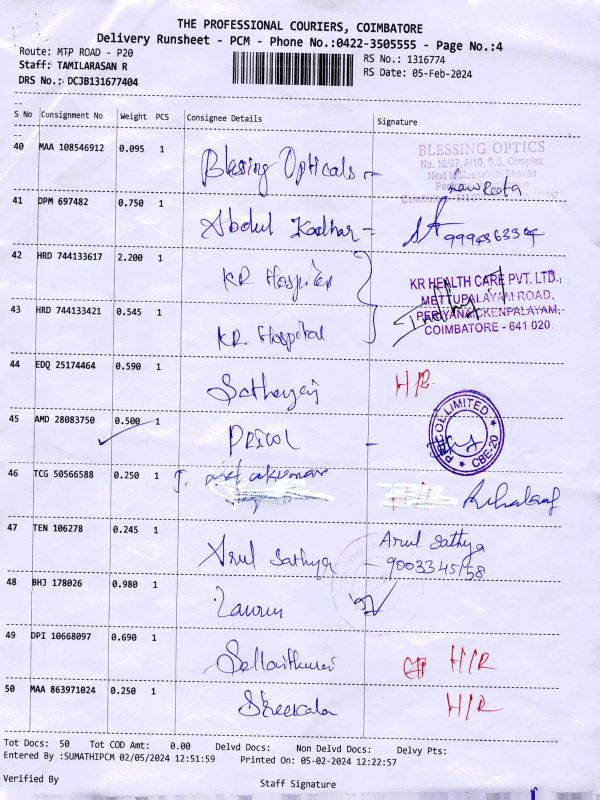 THE PROFESSIONAL COURIERS, COIMBATORE
Delivery Runsheet - PCM - Phone No.:0422-3505555 - Page No.:4
Route: MTP ROAD - P20
RS No.: 1316774
Staff: TAMILARASAN R
RS Date: 05-Feb-2024
DRS No.: DCJB131677404
S No Consignment No Weight PCS Consignee Details Signature
40 MAA 108546912 0.095 1 Blessing Opticals
BLESSING OPTICS
No. 10/87, A/10, S.S. Complex
Next to Meenakshi Bhavan
41 DPM 697482 0.750 1 Abdul Kadhar
42 HRD 744133617 2.200 1 KR Hospital
KR HEALTH CARE PVT. LTD.,
METTUPALAYAM ROAD,
PERIYANAICKENPALAYAM,
COIMBATORE - 641 020.
43 HRD 744133421 0.545 1 KR Hospital
44 EDQ 25174464 0.590 1 H/R
45 AMD 28083750 0.500 1 PRICOL -
PRICOL LIMITED
CBE-20
46 TCG 50566588 0.250 1
47 TEN 106278 0.245 1 Arul Sathya - Arul Sathya
9003345158
48 BHJ 178026 0.980 1
49 DPI 10668097 0.690 1 Sellaithurai H/R
50 MAA 863971024 0.250 1 Sreekala H/R
Tot Docs: 50 Tot COD Amt: 0.00 Delvd Docs: Non Delvd Docs: Delvy Pts:
Entered By :SUMATHIPCM 02/05/2024 12:51:59 Printed On: 05-02-2024 12:22:57
Verified By
Staff Signature